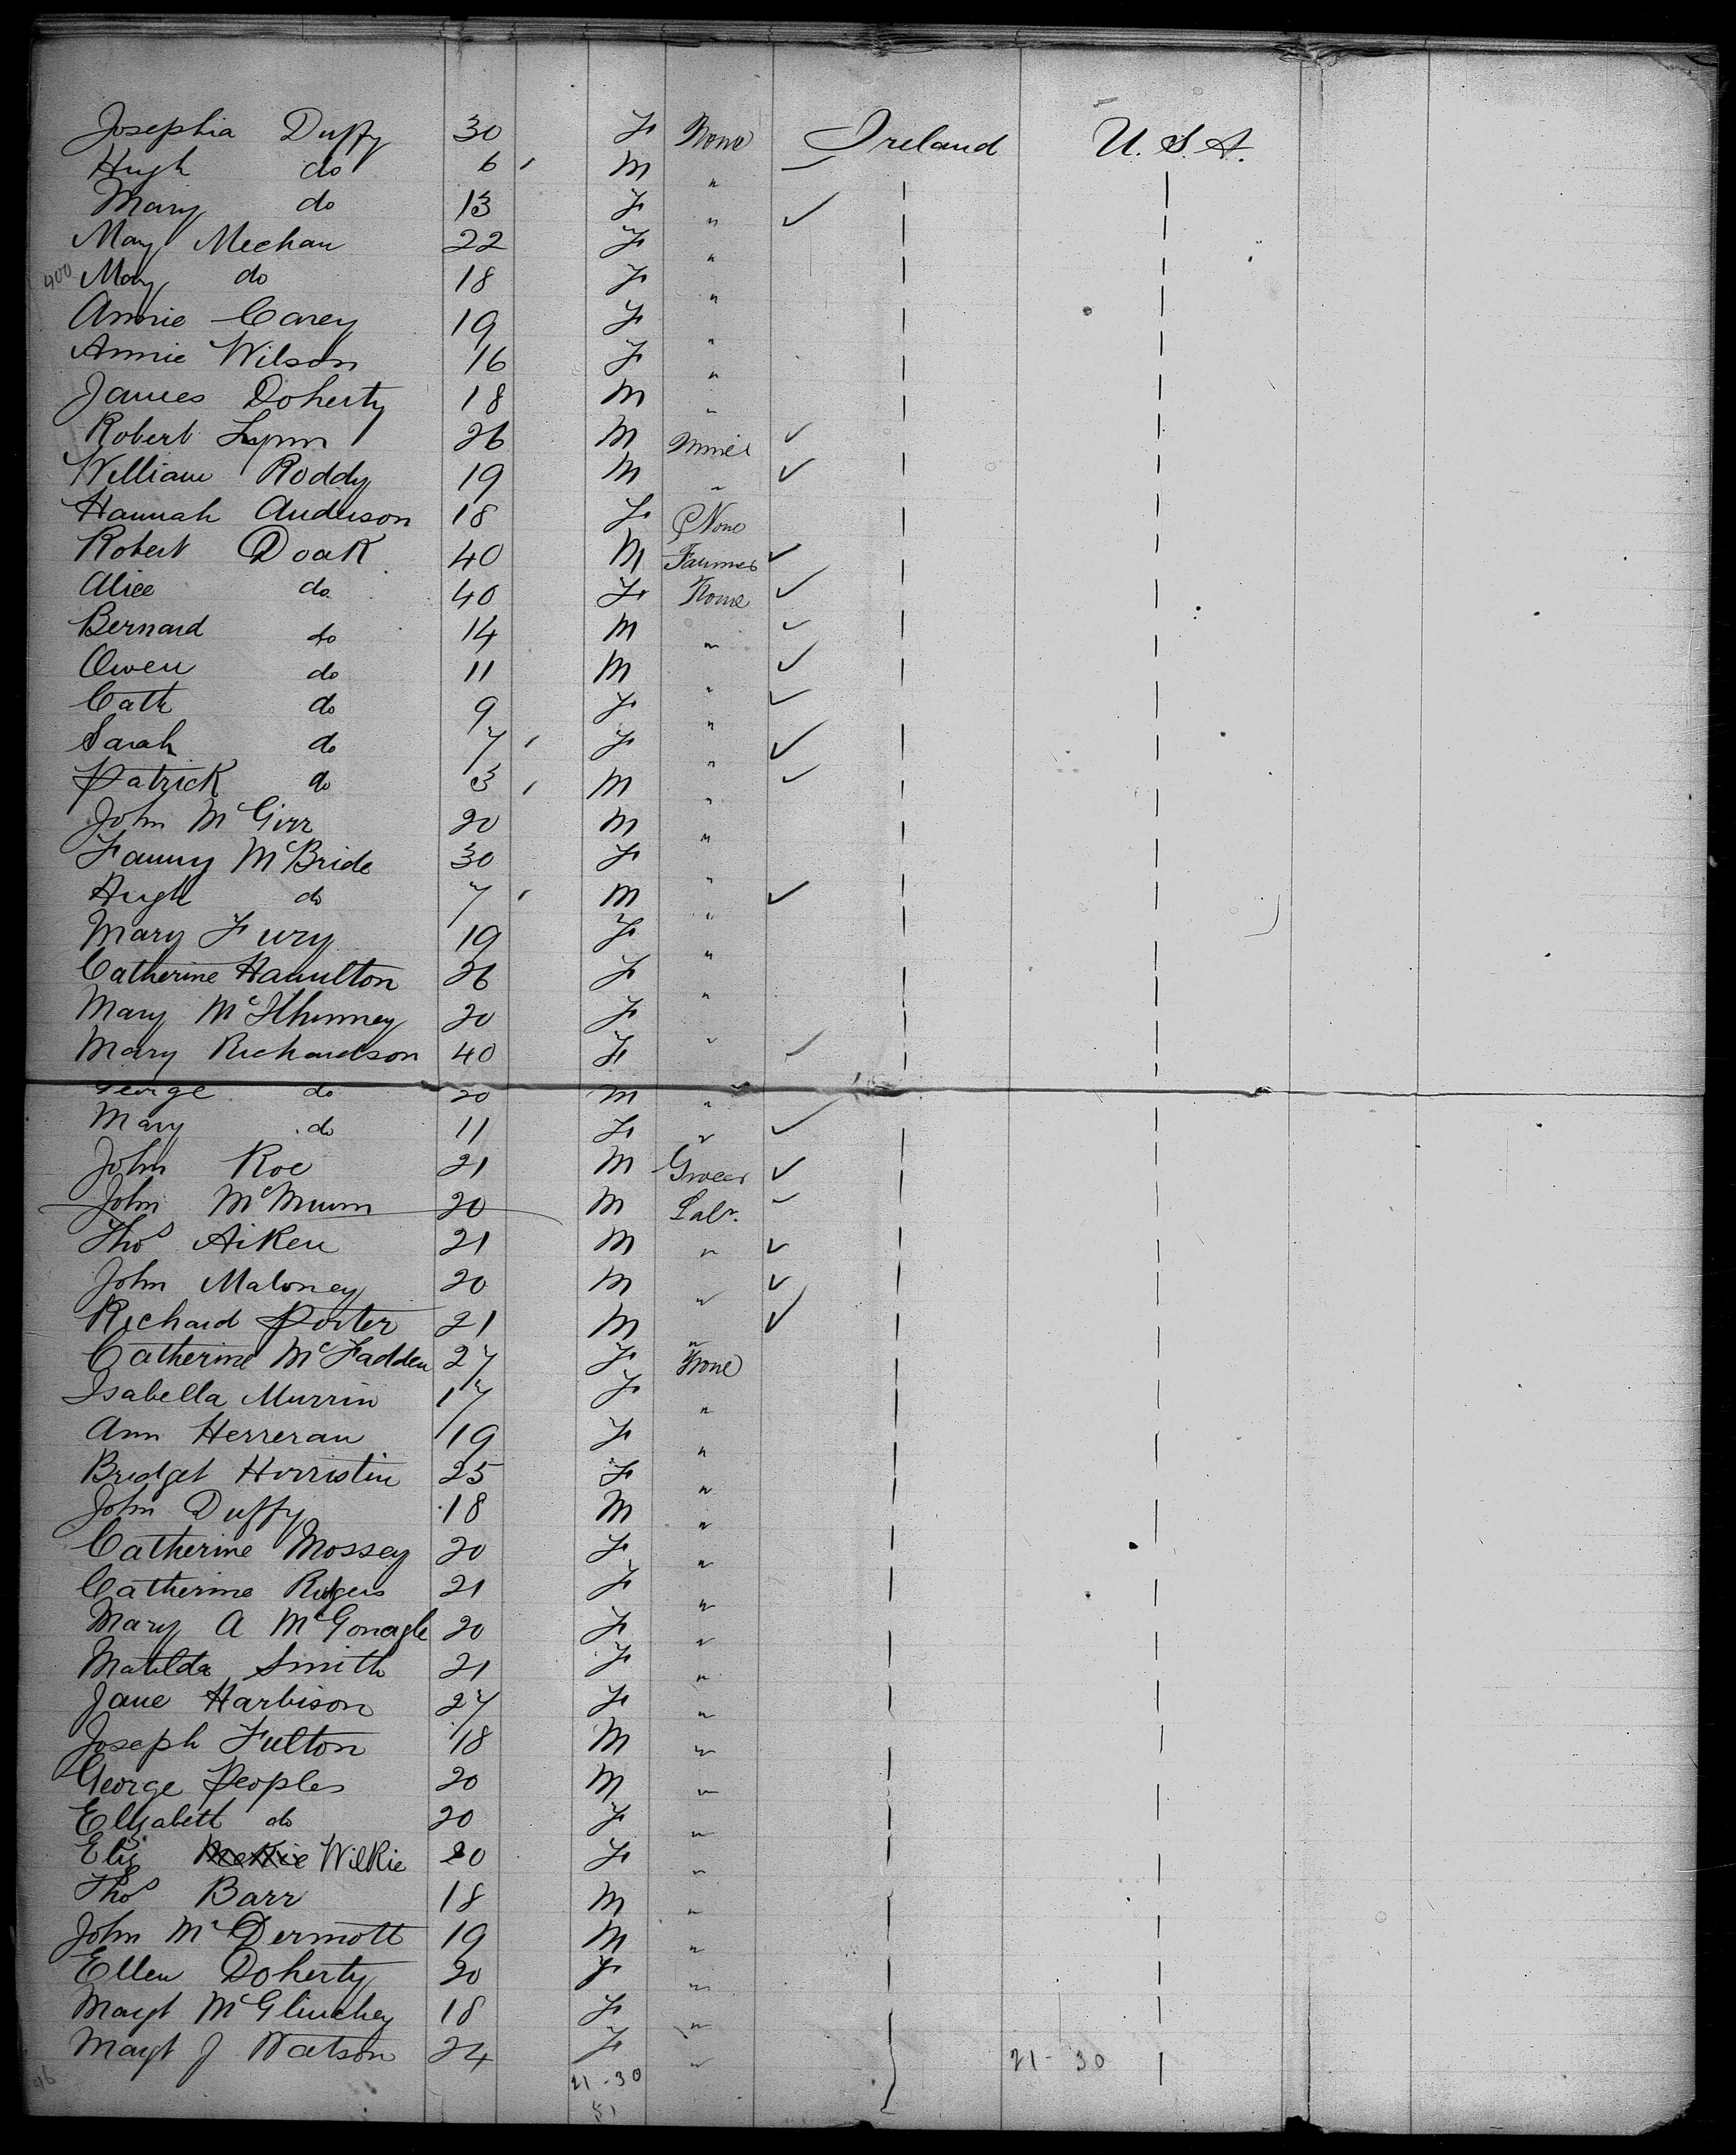 Josephia Duffy 30 F None Ireland U.S.A.
Hugh do 6 M "
Mary do 13 F " ✓
May Meehan 22 F "
400 May do 18 F "
Annie Carey 19 F "
Annie Wilson 16 F "
James Doherty 18 M "
Robert Lynn 26 M Miner ✓
William Roddy 19 M " ✓
Hannah Anderson 18 F None
Robert Doak 40 M Farmer ✓
Alice do 40 F None ✓
Bernard do 14 M " ✓
Owen do 11 M " ✓
Cath do 9 F " ✓
Sarah do 7 F " ✓
Patrick do 3 M " ✓
John McGirr 20 M "
Fanny McBride 30 F "
Hugh do 7 M " ✓
Mary Fury 19 F "
Catherine Hamilton 26 F "
Mary McIlhinney 20 F "
Mary Richardson 40 F " ✓
George do 20 M "
Mary do 11 F " ✓
John Roe 21 M Grocer ✓
John McMunn 20 M Labr. ✓
Thos Aiken 21 M " ✓
John Maloney 20 M " ✓
Richard Porter 21 M " ✓
Catherine McFadden 27 F None
Isabella Murrin 17 F "
Ann Herreran 19 F "
Bridget Horristin 25 F "
John Duffy 18 M "
Catherine Mossey 20 F "
Catherine 21 F "
Mary A McGonagle 20 F "
Matilda Smith 21 F "
Jane Harbison 27 F "
Joseph Fulton 18 M "
George Peoples 20 M "
Elizabeth do 20 F "
Eliz Wilkie 20 F "
Thos Barr 18 M "
John McDermott 19 M "
Ellen Doherty 20 F "
Margt McGlinchey 18 F "
Margt J Watson 24 F "
21-30 21-30
51